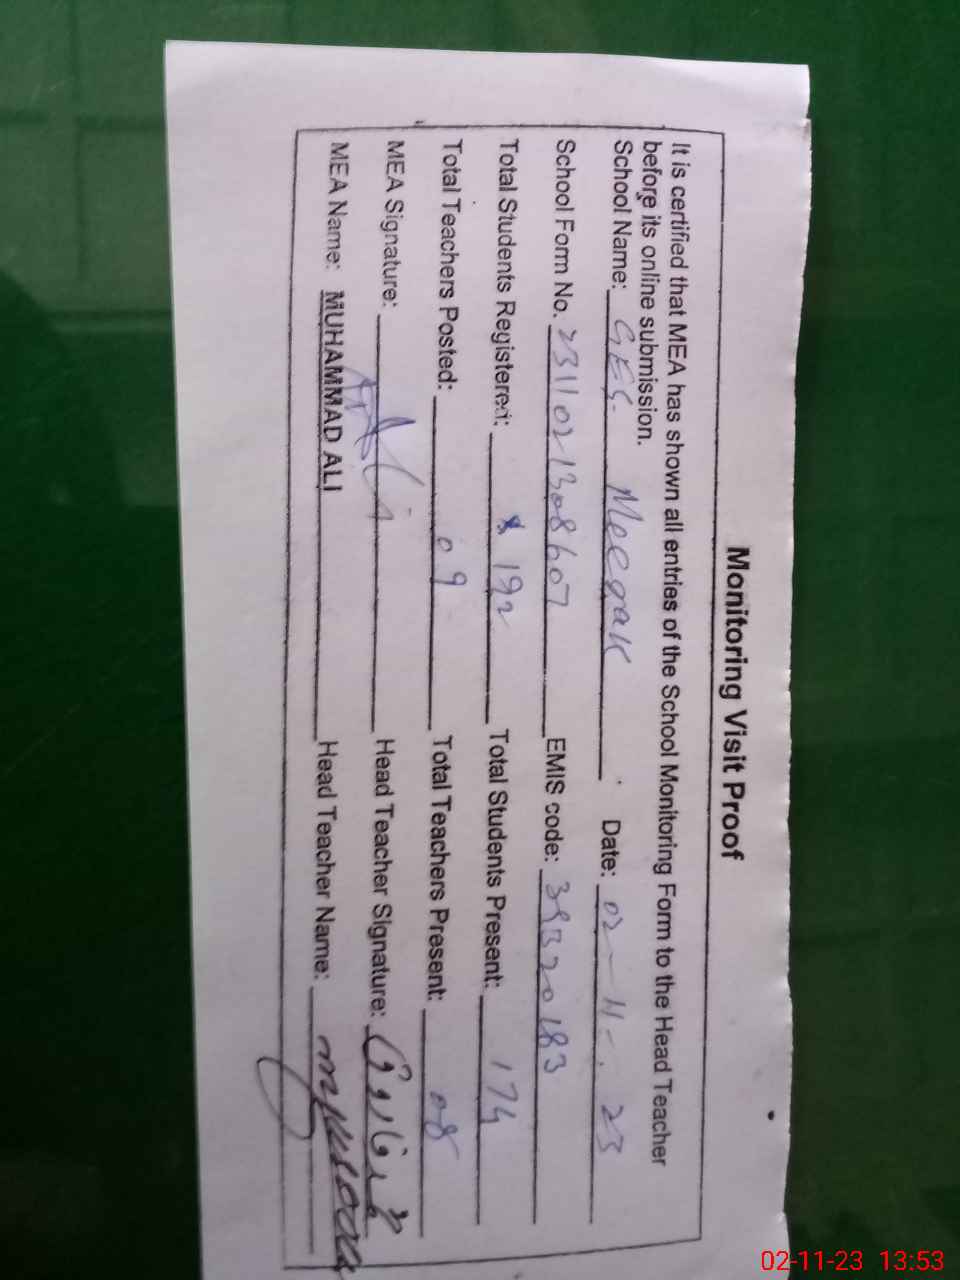 Monitoring Visit Proof
It is certified that MEA has shown all entries of the School Monitoring Form to the Head Teacher
before its online submission.
School Name: GES. Date: 02-11-23
School Form No. 2311021308607 EMIS code:
Total Students Registered: 192 Total Students Present: 174
Total Teachers Posted: 09 Total Teachers Present: 08
MEA Signature: Head Teacher Signature:
MEA Name: MUHAMMAD ALI Head Teacher Name:
02-11-23 13:53